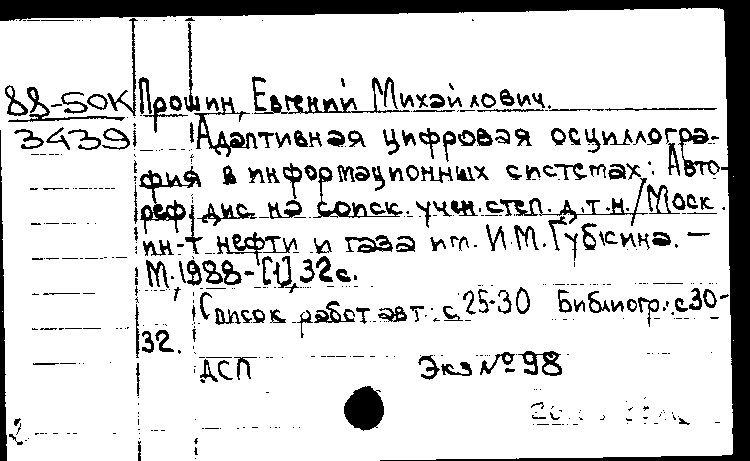 88-50К Прошин, Евгений Михайлович.
3439 Адаптивная цифровая осциллогра-
фия в информационных системах: Авто-
реф. дис. на соиск. учен. степ. д.т.н. / Моск.
ин-т нефти и газа им. И.М. Губкина. —
М., 1988 - [1], 32 с.
Список работ авт.: с. 25-30 Библиогр.: с 30-
32.
ДСП Экз № 98
2